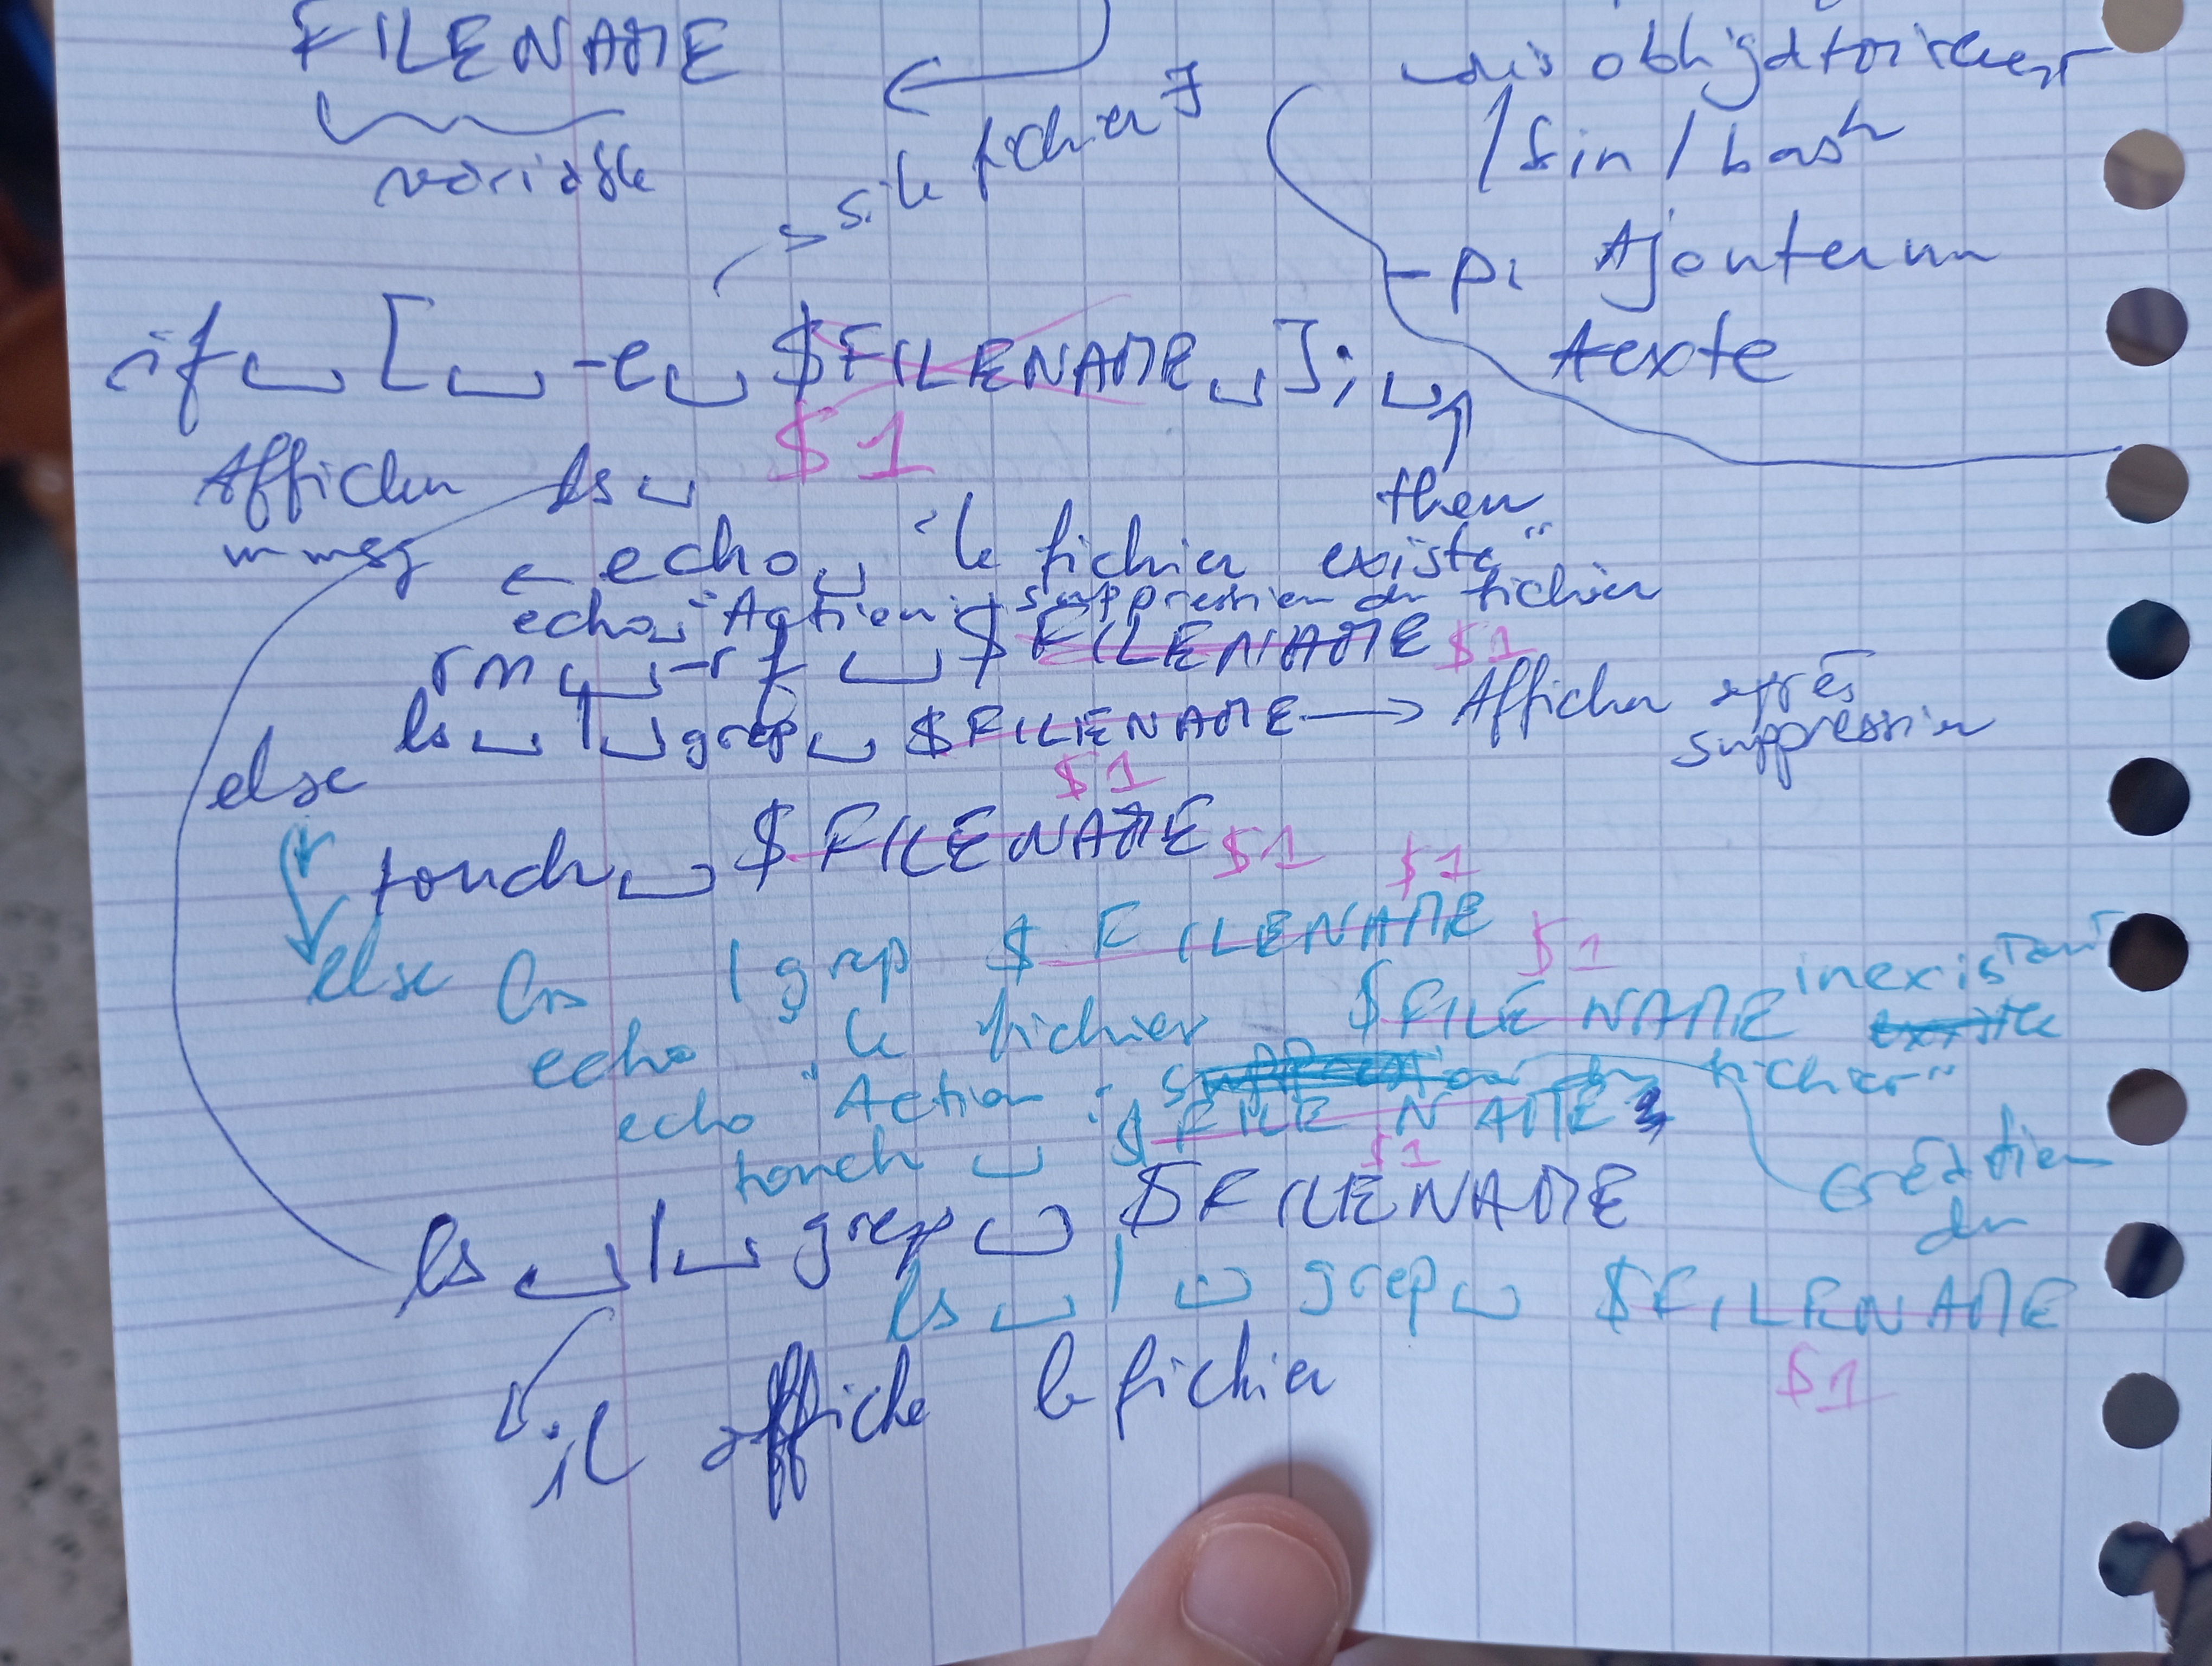 FILENAME
variable
si le fichier ∃
obligatoirement
/bin/bash
Ajouter un
texte
if ␣ [ ␣ -e ␣ $FILENAME ␣ ]; ␣
$1
then
Afficher ls ␣
un msg
← echo ␣ "le fichier existe"
echo ␣ "Action : suppression du fichier
rm ␣ -rf ␣ $FILENAME $1
ls ␣ | ␣ grep ␣ $FILENAME → Afficher après
suppression
$1
else
touch ␣ $FILENAME $1
$1
else ls | grep $FILENAME
$1
echo "le fichier $FILENAME inexistant
echo "Action : fichier"
création
du
touch ␣ $FILENAME
$1
ls ␣ | ␣ grep ␣ $FILENAME
ls ␣ | ␣ grep ␣ $FILENAME
$1
il affiche le fichier